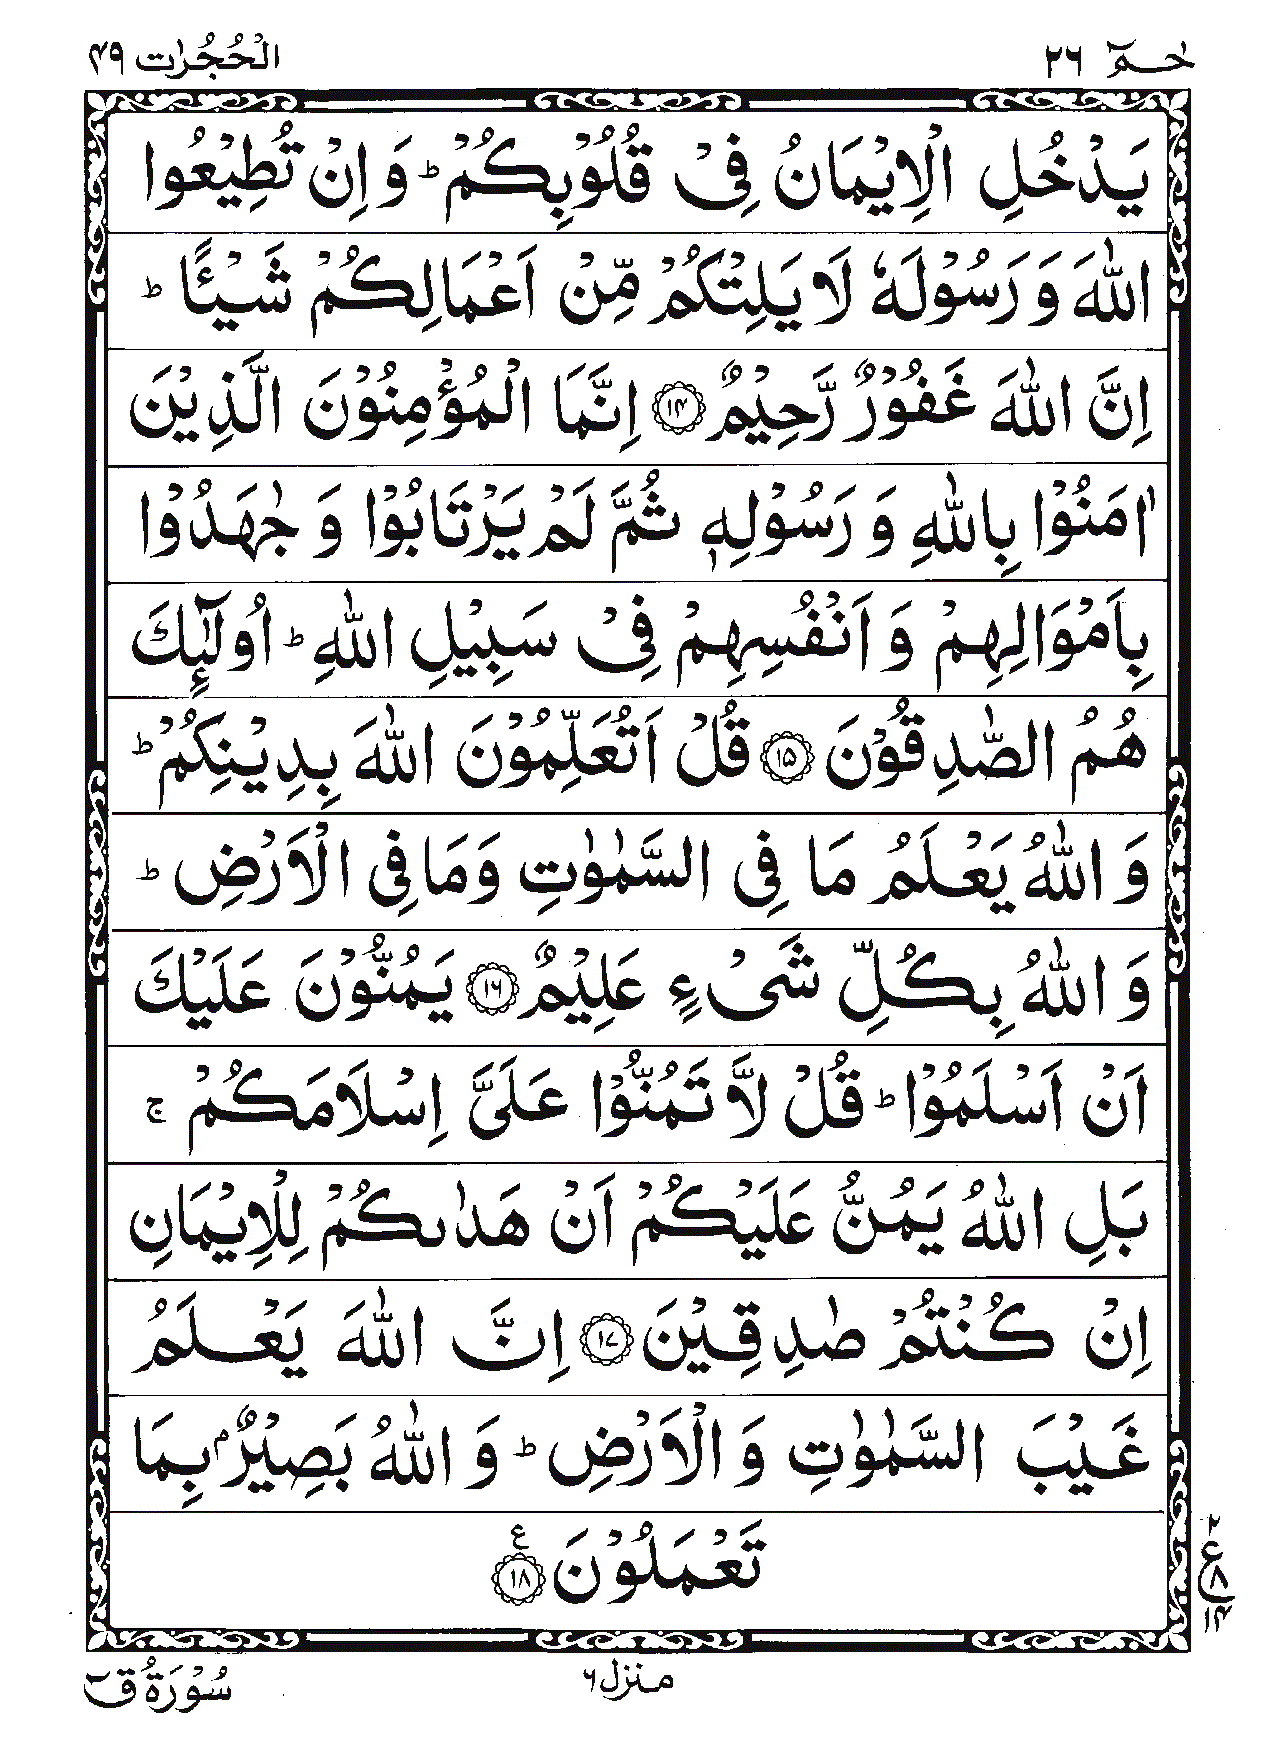 حٰمٓ ٢٦
الْحُجُرٰت ٤٩
يَدْخُلِ الْاِيْمَانُ فِىْ قُلُوْبِكُمْ ؕ وَاِنْ تُطِيْعُوا
اللّٰهَ وَ رَسُوْلَهٗ لَا يَلِتْكُمْ مِّنْ اَعْمَالِكُمْ شَيْـًٔا ؕ
اِنَّ اللّٰهَ غَفُوْرٌ رَّحِيْمٌ ﴿۱۴﴾ اِنَّمَا الْمُؤْمِنُوْنَ الَّذِيْنَ
اٰمَنُوْا بِاللّٰهِ وَ رَسُوْلِهٖ ثُمَّ لَمْ يَرْتَابُوْا وَ جٰهَدُوْا
بِاَمْوَالِهِمْ وَ اَنْفُسِهِمْ فِىْ سَبِيْلِ اللّٰهِ ؕ اُولٰٓئِكَ
هُمُ الصّٰدِقُوْنَ ﴿۱۵﴾ قُلْ اَتُعَلِّمُوْنَ اللّٰهَ بِدِيْنِكُمْ ؕ
وَ اللّٰهُ يَعْلَمُ مَا فِى السَّمٰوٰتِ وَمَا فِى الْاَرْضِ ؕ
وَ اللّٰهُ بِكُلِّ شَىْءٍ عَلِيْمٌ ﴿۱۶﴾ يَمُنُّوْنَ عَلَيْكَ
اَنْ اَسْلَمُوْا ؕ قُلْ لَّا تَمُنُّوْا عَلَىَّ اِسْلَامَكُمْ ۚ
بَلِ اللّٰهُ يَمُنُّ عَلَيْكُمْ اَنْ هَدٰٮكُمْ لِلْاِيْمَانِ
اِنْ كُنْتُمْ صٰدِقِيْنَ ﴿۱۷﴾ اِنَّ اللّٰهَ يَعْلَمُ
غَيْبَ السَّمٰوٰتِ وَ الْاَرْضِ ؕ وَ اللّٰهُ بَصِيْرٌۢ بِمَا
تَعْمَلُوْنَ ﴿۱۸﴾ ع
٢
ع
٨
١٤
منزل ٦
سُوْرَةُ قٓ